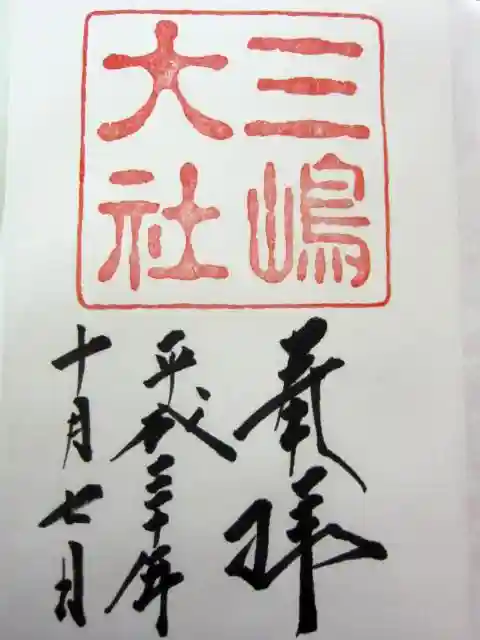 三嶋
大社
奉拝
平成三十年
十月七日